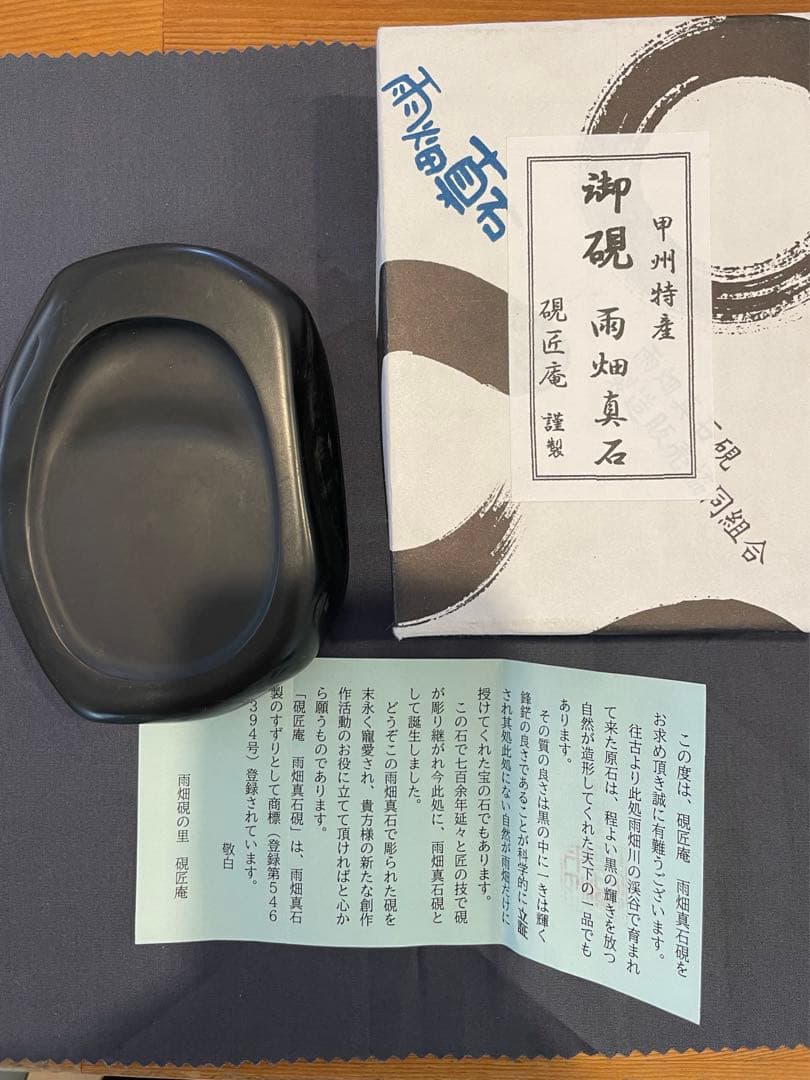 雨畑真石
甲州特産
御硯 雨畑真石
硯匠庵 謹製
硯
同組合
この度は、硯匠庵 雨畑真石硯を
お求め頂き誠に有難うございます。
往古より此処雨畑川の渓谷で育まれ
て来た原石は、程よい黒の輝きを放つ
自然が造形してくれた天下の一品でも
あります。
その質の良さは黒の中に一きは輝く
鋒鋩の良さであることが科学的に立証
され其処此処にない自然が雨畑だけに
授けてくれた宝の石でもあります。
この石で七百余年延々と匠の技で硯
が彫り継がれ今此処に、雨畑真石硯と
して誕生しました。
どうぞこの雨畑真石で彫られた硯を
末永く寵愛され、貴方様の新たな創作
作活動のお役に立てて頂ければと心か
ら願うものであります。
「硯匠庵 雨畑真石硯」は、雨畑真石
製のすずりとして商標（登録第546
394号）登録されています。
敬白
雨畑硯の里 硯匠庵